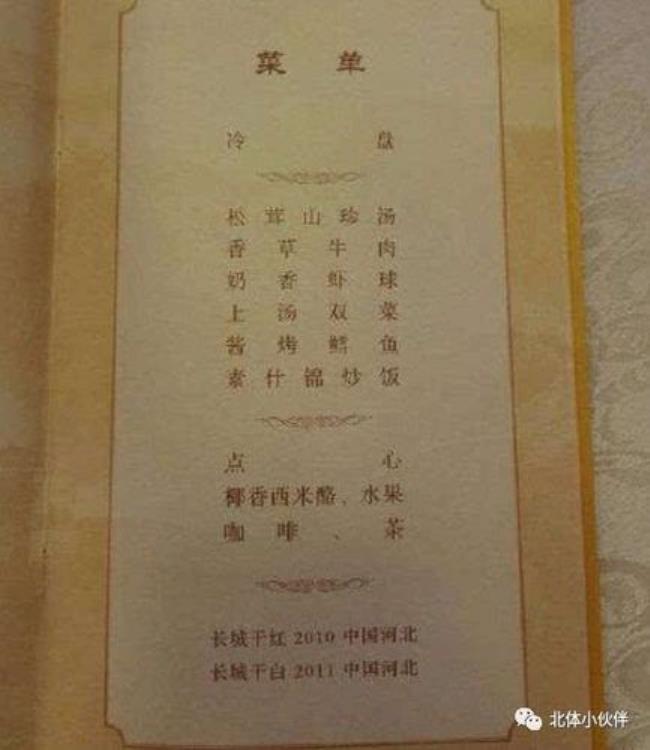 菜单
冷盘
松茸山珍汤
香草牛肉
奶香虾球
上汤双菜
酱烤鳕鱼
素什锦炒饭
点心
椰香西米酪、水果
咖啡、茶
长城干红 2010 中国河北
长城干白 2011 中国河北
北体小伙伴